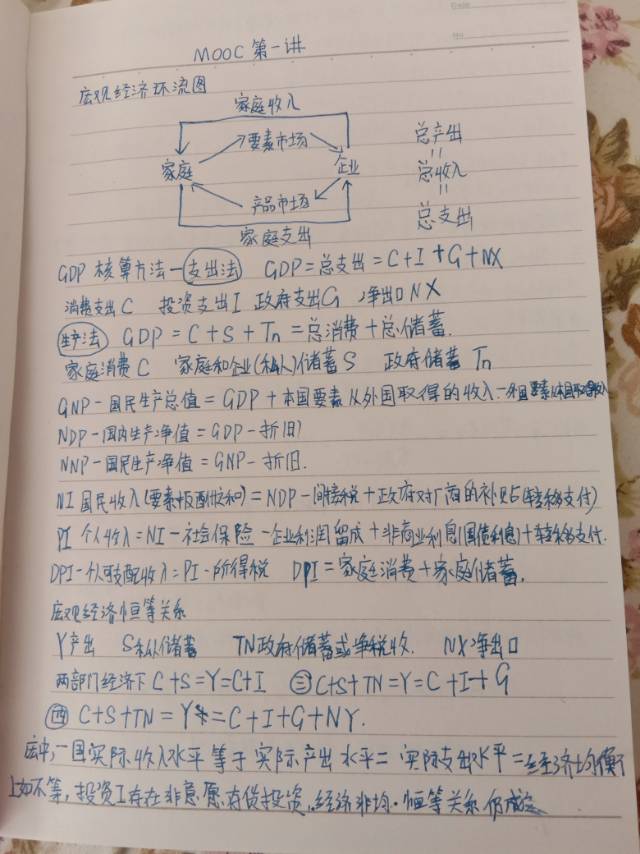 Date
No
MOOC 第一讲
宏观经济环流图
家庭收入
要素市场
总产出
=
家庭
企业
总收入
=
产品市场
总支出
家庭支出
GDP 核算方法一支出法 GDP=总支出=C+I+G+NX
消费支出C 投资支出I 政府支出G 净出口NX
生产法 GDP=C+S+Tn=总消费+总储蓄.
家庭消费C 家庭和企业(私人)储蓄S 政府储蓄 Tn
GNP-国民生产总值=GDP+本国要素从外国取得的收入-外国要素从本国取得收入
NDP-国内生产净值=GDP-折旧
NNP-国民生产净值=GNP-折旧.
NI国民收入(要素报酬和)=NDP-间接税+政府对厂商的补贴(转移支付)
PI 个人收入=NI-社会保险-企业利润留成+非商业利息(国债利息)+转移支付.
DPI-个人可支配收入=PI-所得税 DPI=家庭消费+家庭储蓄.
宏观经济恒等关系
Y产出 S私人储蓄 TN政府储蓄或净税收. NX净出口
两部门经济下 C+S=Y=C+I ㊂C+S+TN=Y=C+I+G
㊃ C+S+TN=Y=C+I+G+NY.
宏中,一国实际收入水平等于实际产出水平=实际支出水平=经济均衡
上如不等,投资I存在非意愿存货投资,经济非均.恒等关系仍成立